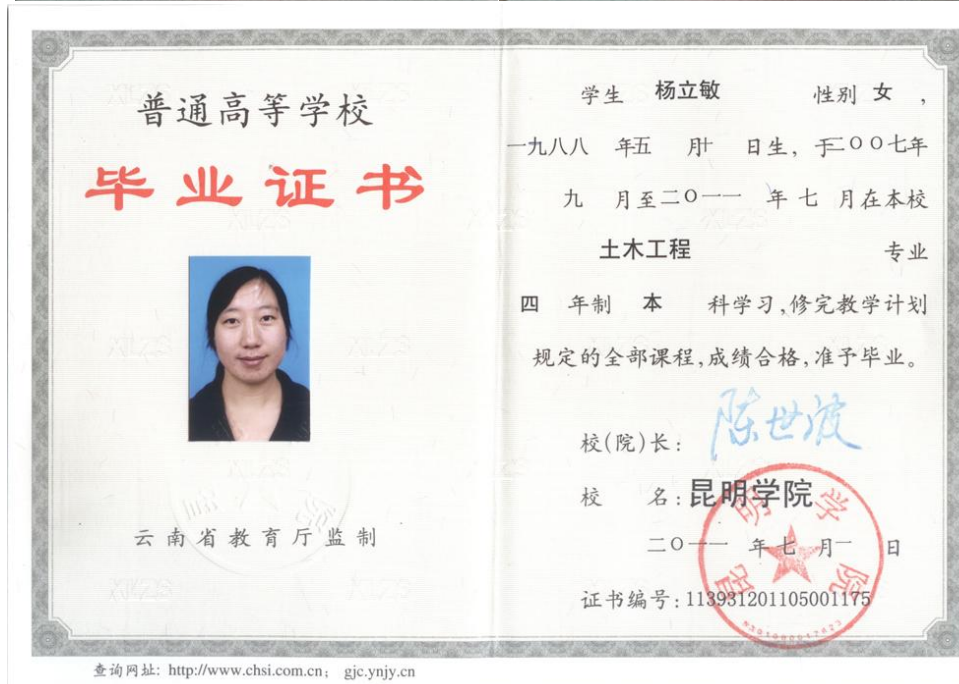 普通高等学校
毕业证书
云南省教育厅监制
学生 杨立敏 性别 女 ,
一九八八 年五 月十 日生, 于二〇〇七年
九 月至二〇一一 年 七 月在本校
土木工程 专业
四 年制 本 科学习,修完教学计划
规定的全部课程,成绩合格,准予毕业。
校(院)长: 陈世波
校 名: 昆明学院
昆明学院
二〇一一 年 七 月一 日
证书编号: 113931201105001175
5301000017623
查询网址: http://www.chsi.com.cn; gjc.ynjy.cn